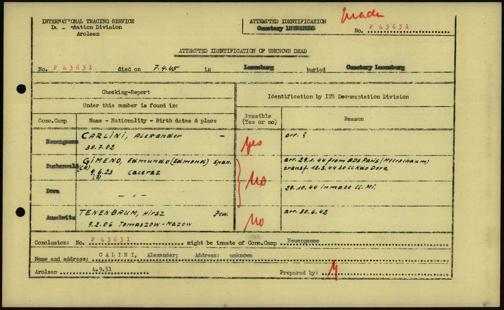 made
INTERNATIONAL TRACING SERVICE
Documentation Division
Arolsen
ATTEMPTED IDENTIFICATION
Cemetery LUNEBURG
No. F 43631
ATTEMPTED IDENTIFICATION OF UNKNOWN DEAD
No. F 43631 died on 7.4.45 in Luneburg buried Cemetery Luneburg
Checking-Report
Under this number is found in:
Identification by ITS Documentation Division
Conc.Camp Name - Nationality - Birth dates & place Possible (Yes or no)
CARLINI, Alexander - yes arr. ?
Neuengamme 30.7.02
Buchenwald GIMENO, Edmundo (Edmond) Span. arr. 29.1.44 from BDS Paris (Meerschaum)
9.6.23 Caceraz No transf. 12.3.44 to LL Kdo Dora
Dora - " - 28.10.44 inmate LL Mi.
TENENBAUM, Hirsz Jew. arr. 30.6.42
Auschwitz 9.2.06 Tomaszow-Mazow No
Conclusion: No. F 43631 might be inmate of Conc.Camp Neuengamme
Name and address: CALINI, Alexander; Address: unknown
Arolsen 4.9.51 Prepared by: